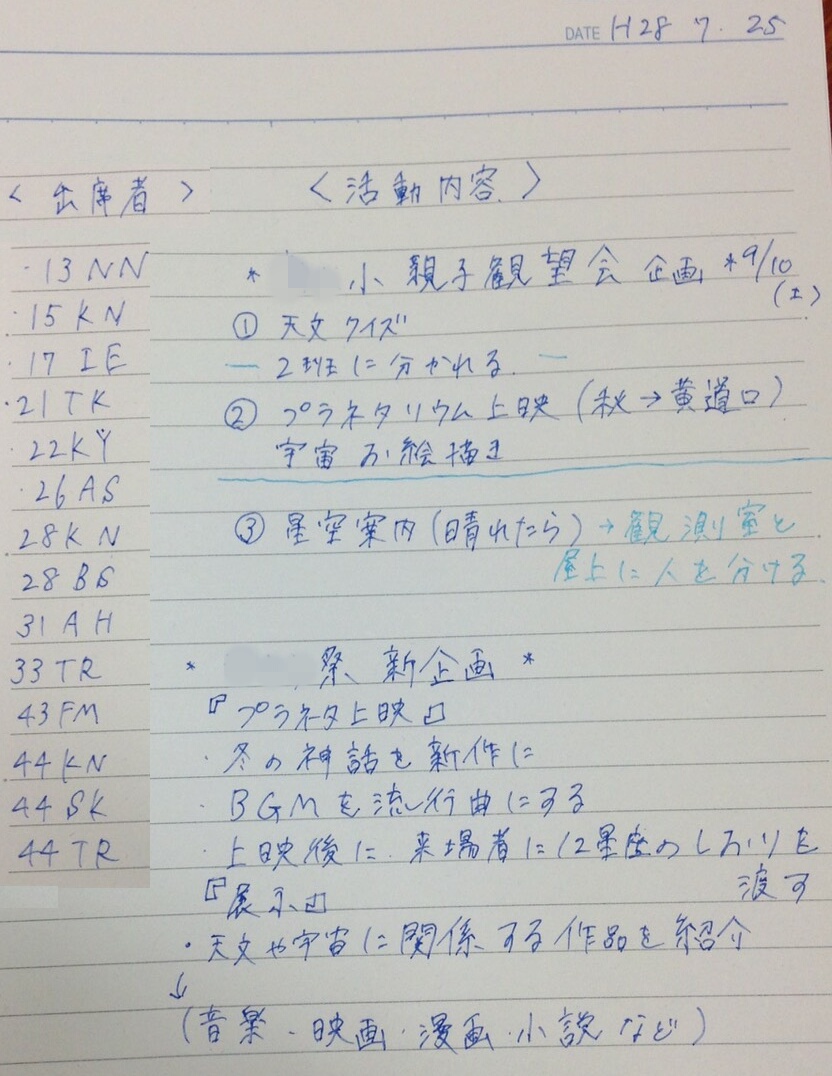 DATE H28 7. 25
<出席者>
・13 NN
・15 KN
・17 IE
・21 TK
・22 KY
・26 AS
・28 KN
28 BS
31 AH
33 TR
43 FM
・44 KN
44 SK
44 TR
<活動内容>
* 小 親子観望会 企画 * 9/10
(土)
① 天文クイズ
― 2班に分かれる. ―
② プラネタリウム上映 (秋→黄道口)
宇宙お絵描き
③ 星空案内 (晴れたら) → 観測室と
屋上に人を分ける.
* 祭 新企画 *
『プラネタ上映』
・冬の神話を新作に
・BGMを流行曲にする
・上映後に、来場者に12星座のしおりを
渡す
『展示』
・天文や宇宙に関係する作品を紹介
↓
(音楽・映画・漫画・小説など)